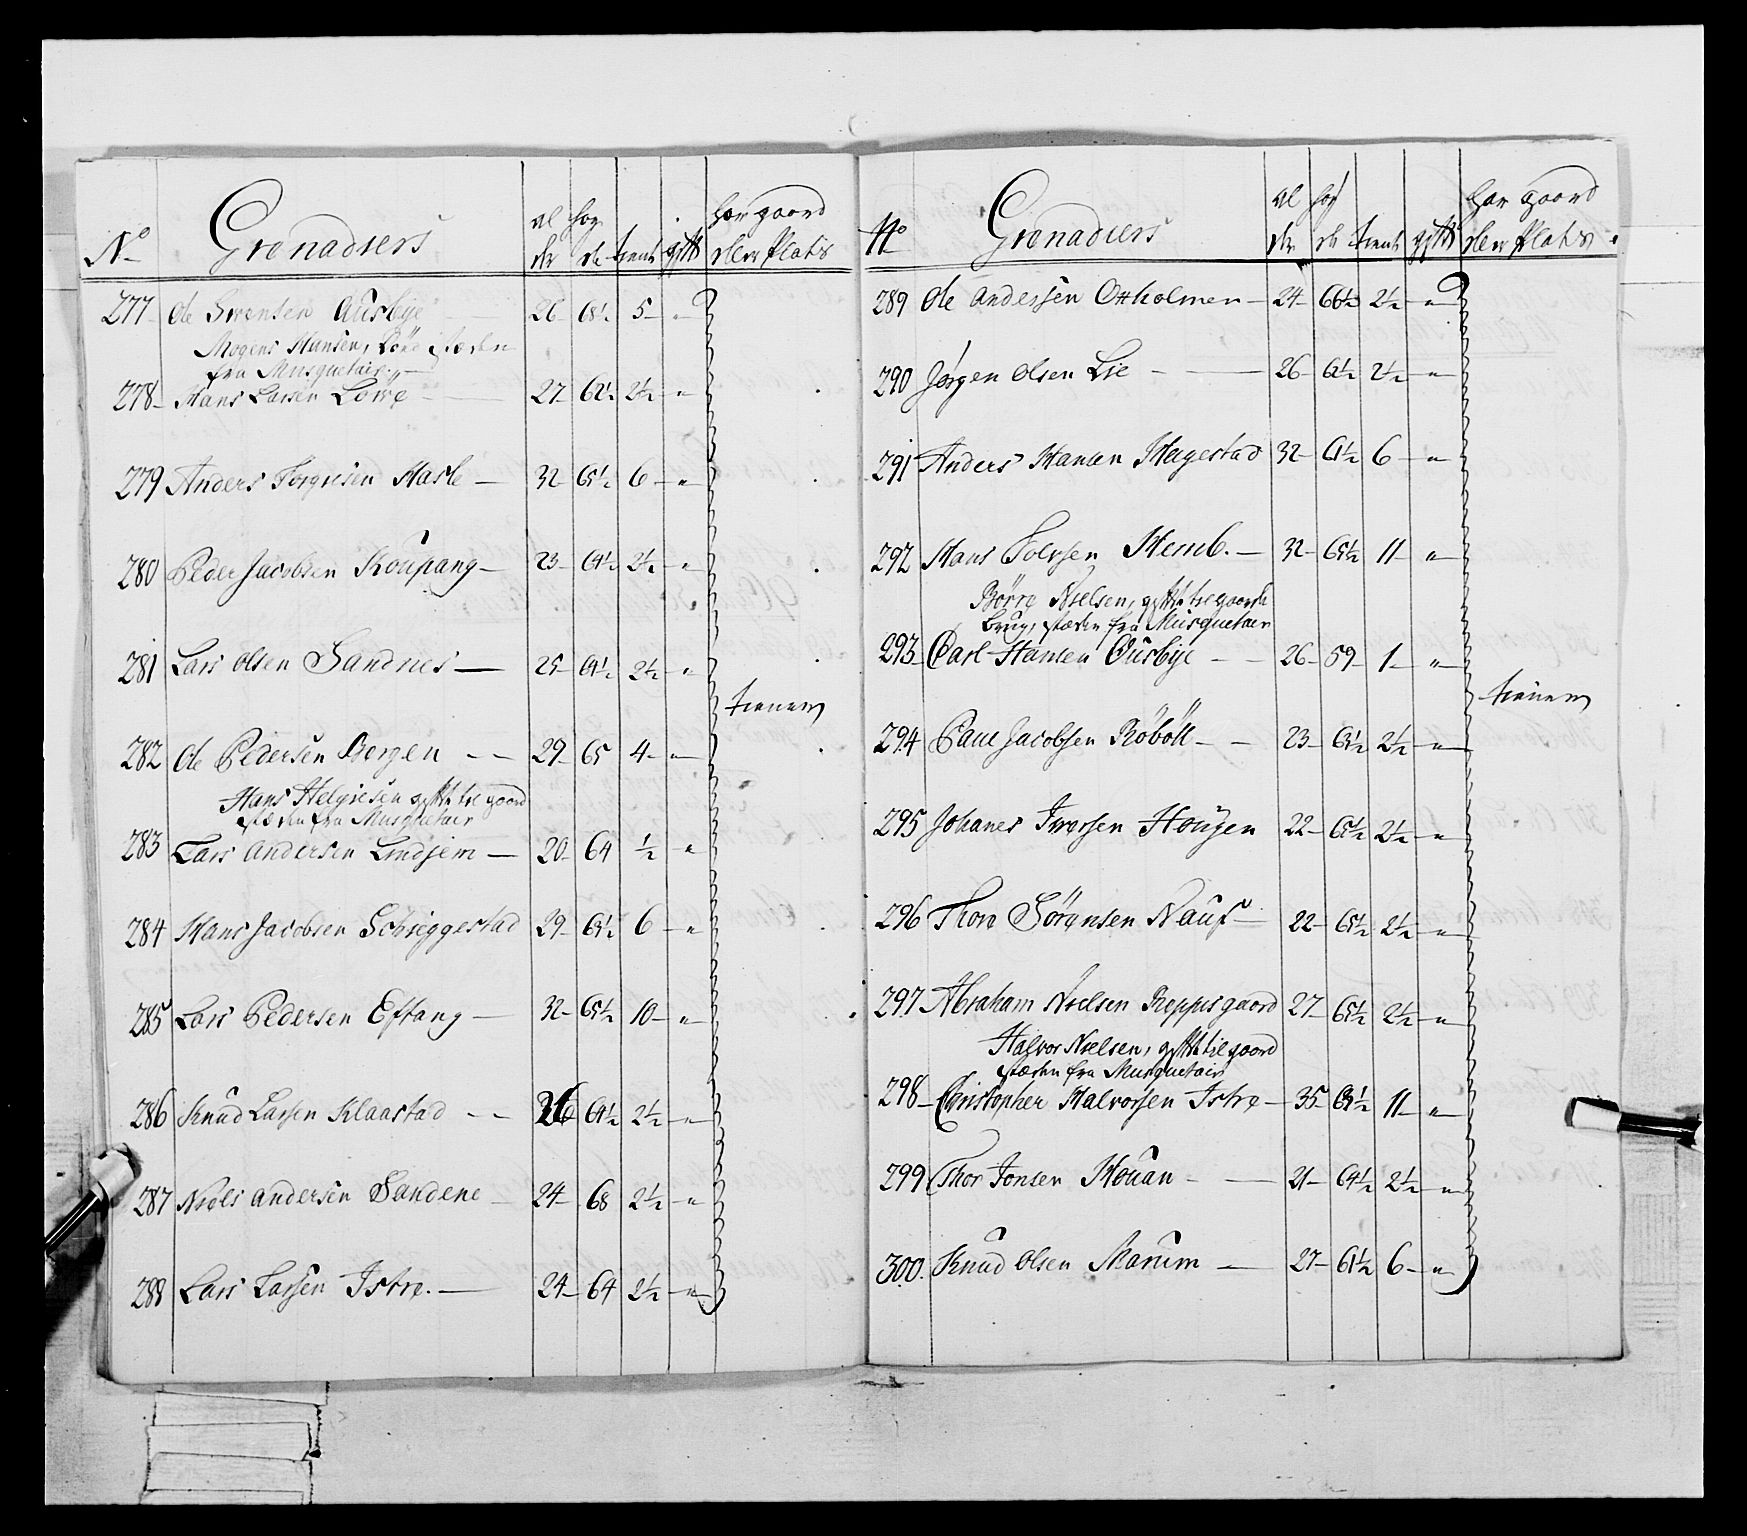 No Grenadiers al der høy de tient gift har gaard eller Plats
277 Ole Svensen Ausbye 26 68½ 5 "
Mogens Hansen, Løve støden
fra Musquetair.
278 Hans Larsen Lowe 27 62½ 2½ "
279 Anders Torgiesen Hasle 32 65½ 6 "
280 Peder Jacobsen Koupang 23 64½ 2½ "
281 Lars Olsen Sandnes 25 64½ 2½ "
tienner
282 Ole Pedersen Bergen 29 65 4 "
Hans Helgiesen gift til gaard
støden fra Musquetair
283 Lars Andersen Lindsem 20 64 ½ "
284 Hans Jacobsen Schieggestad 29 63½ 6 "
285 Lars Pedersen Eftang 32 65½ 10 "
286 Knud Larsen Klaastad 26 64½ 2½ "
287 Niels Andersen Sandene 24 68 2½ "
288 Lars Larsen Istre 24 64 2½ "
No Grenadiers al der høy de tient gift har gaard eller Plats
289 Ole Andersen Ottholmen 24 66½ 2½ "
290 Jørgen Olsen Lie 26 62½ 2½ "
291 Anders Hansen Hagestad 32 61½ 6 "
292 Hans Solvsen Hemb. 32 65½ 11 "
Børre Nielsen, gift til gaards
brug, støden fra Musquetair
293 Carl Hansen Ousbye 26 59 1 "
tienner
294 Paul Jacobsen Røbøll 23 63½ 2½ "
295 Johanes Iversen Hougen 22 65½ 2½ "
296 Thore Sørensen Nauf 22 65½ 2½ "
297 Abraham Nielsen Reppesgaard 27 65½ 2½ "
Halvor Nielsen, gift til gaard
støden fra Musquetair
298 Christopher Halvorsen Istre 35 63½ 11 "
299 Thor Jonsen Houan 21 64½ 2½ "
300. Knud Olsen Marum 27 61½ 6 "